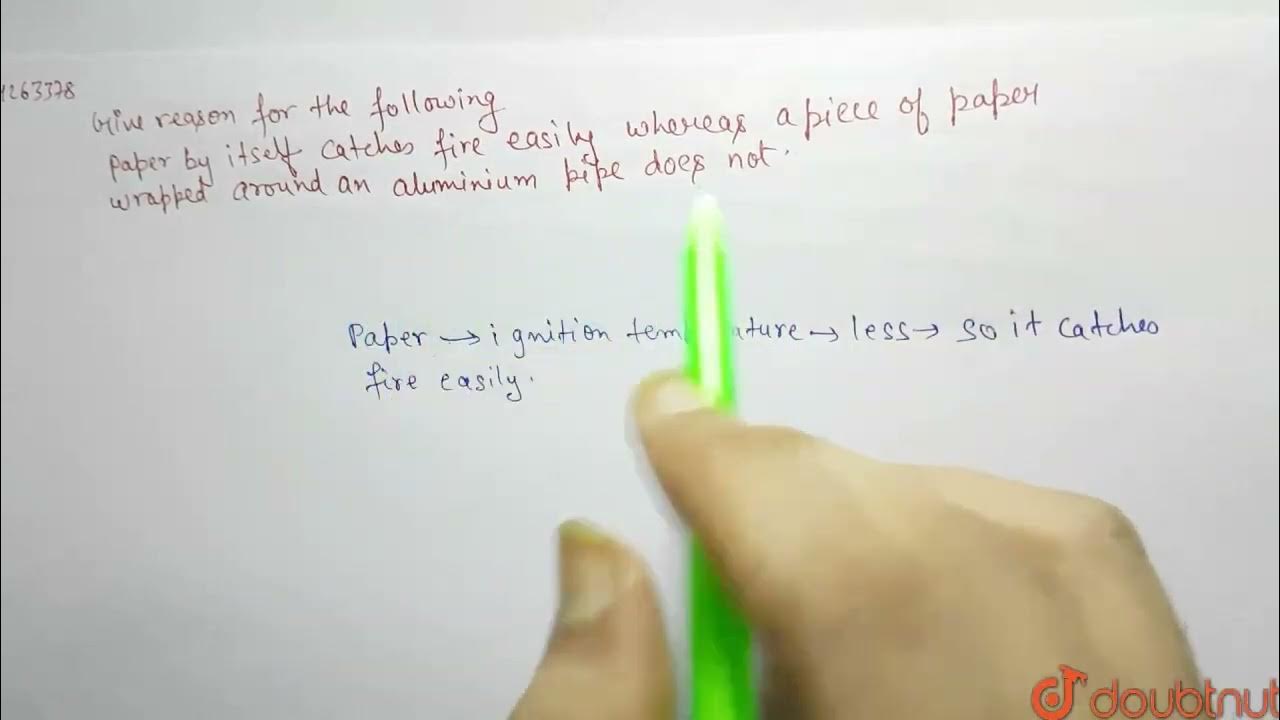 1263378
Give reason for the following
paper by itself catches fire easily whereas a piece of paper
wrapped around an aluminium pipe does not.
Paper → ignition temature → less → so it catches
fire easily.
doubtnut